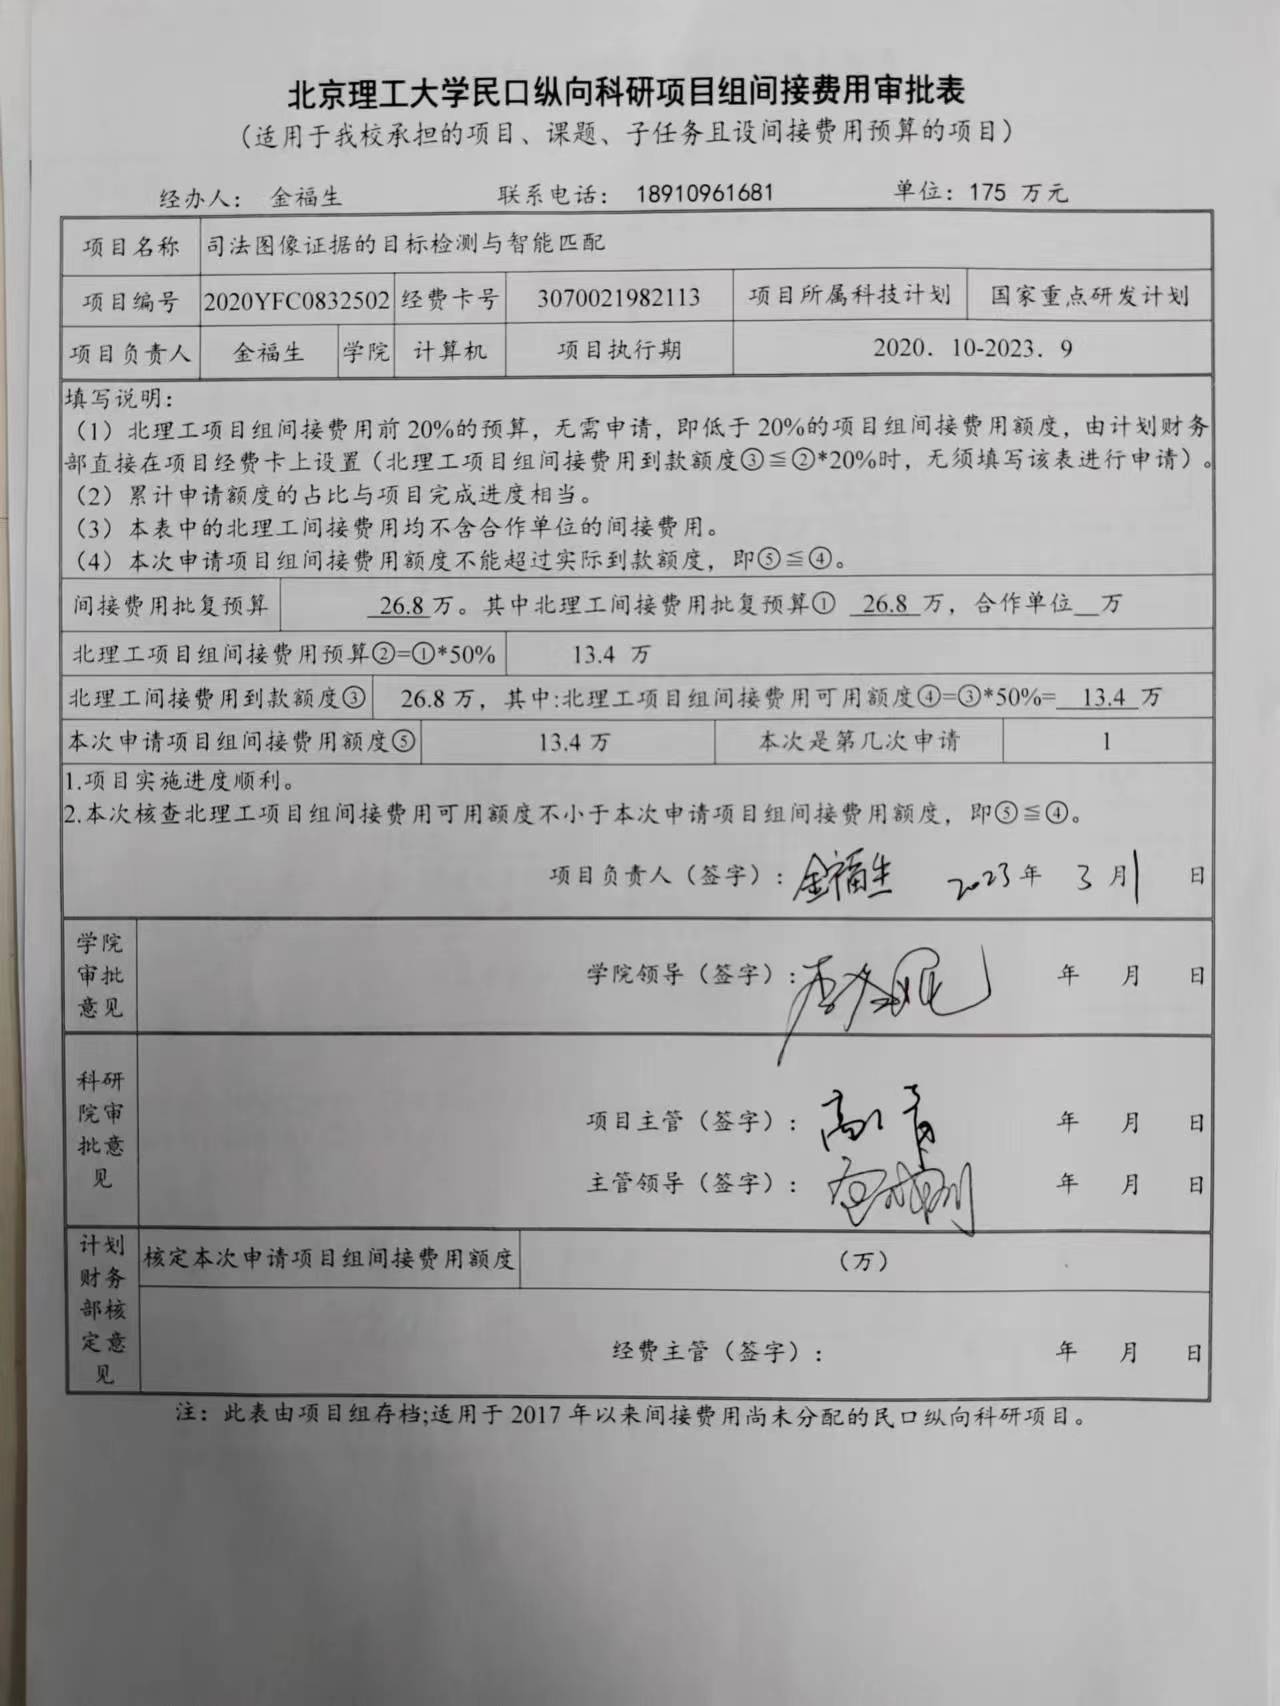 北京理工大学民口纵向科研项目组间接费用审批表
（适用于我校承担的项目、课题、子任务且设间接费用预算的项目）
经办人： 金福生 联系电话： 18910961681 单位：175 万元
项目名称 司法图像证据的目标检测与智能匹配
项目编号 2020YFC0832502 经费卡号 3070021982113 项目所属科技计划 国家重点研发计划
项目负责人 金福生 学院 计算机 项目执行期 2020．10-2023．9
填写说明：
（1）北理工项目组间接费用前20%的预算，无需申请，即低于20%的项目组间接费用额度，由计划财务
部直接在项目经费卡上设置（北理工项目组间接费用到款额度③≦②*20%时，无须填写该表进行申请）。
（2）累计申请额度的占比与项目完成进度相当。
（3）本表中的北理工间接费用均不含合作单位的间接费用。
（4）本次申请项目组间接费用额度不能超过实际到款额度，即⑤≦④。
间接费用批复预算 26.8 万。其中北理工间接费用批复预算① 26.8 万，合作单位__万
北理工项目组间接费用预算②=①*50% 13.4 万
北理工间接费用到款额度③ 26.8 万，其中:北理工项目组间接费用可用额度④=③*50%= 13.4 万
本次申请项目组间接费用额度⑤ 13.4 万 本次是第几次申请 1
1.项目实施进度顺利。
2.本次核查北理工项目组间接费用可用额度不小于本次申请项目组间接费用额度，即⑤≦④。
项目负责人（签字）：金福生 2023年 3月1 日
学院
审批
意见
学院领导（签字）： 年 月 日
科研
院审
批意
见
项目主管（签字）： 高 年 月 日
主管领导（签字）： 年 月 日
计划
财务
部核
定意
见
核定本次申请项目组间接费用额度 （万）
经费主管（签字）： 年 月 日
注：此表由项目组存档;适用于2017年以来间接费用尚未分配的民口纵向科研项目。